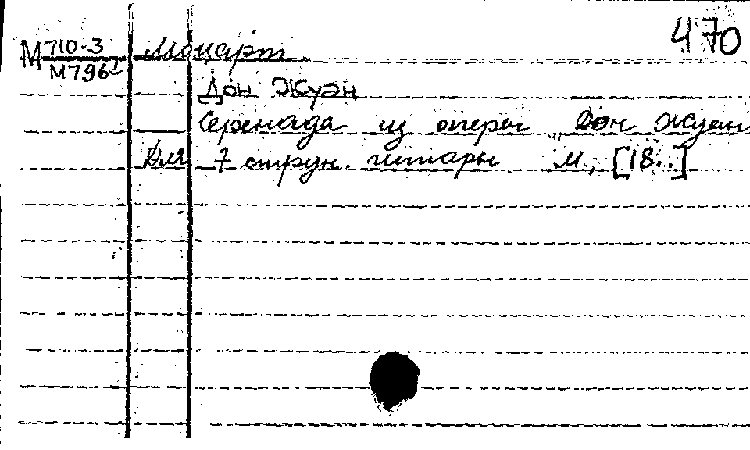 470
М 710-3 Моцарт
М796
Дон Жуан
Серенада из оперы „Дон Жуан
Для 7 струн. гитары М., [18..]